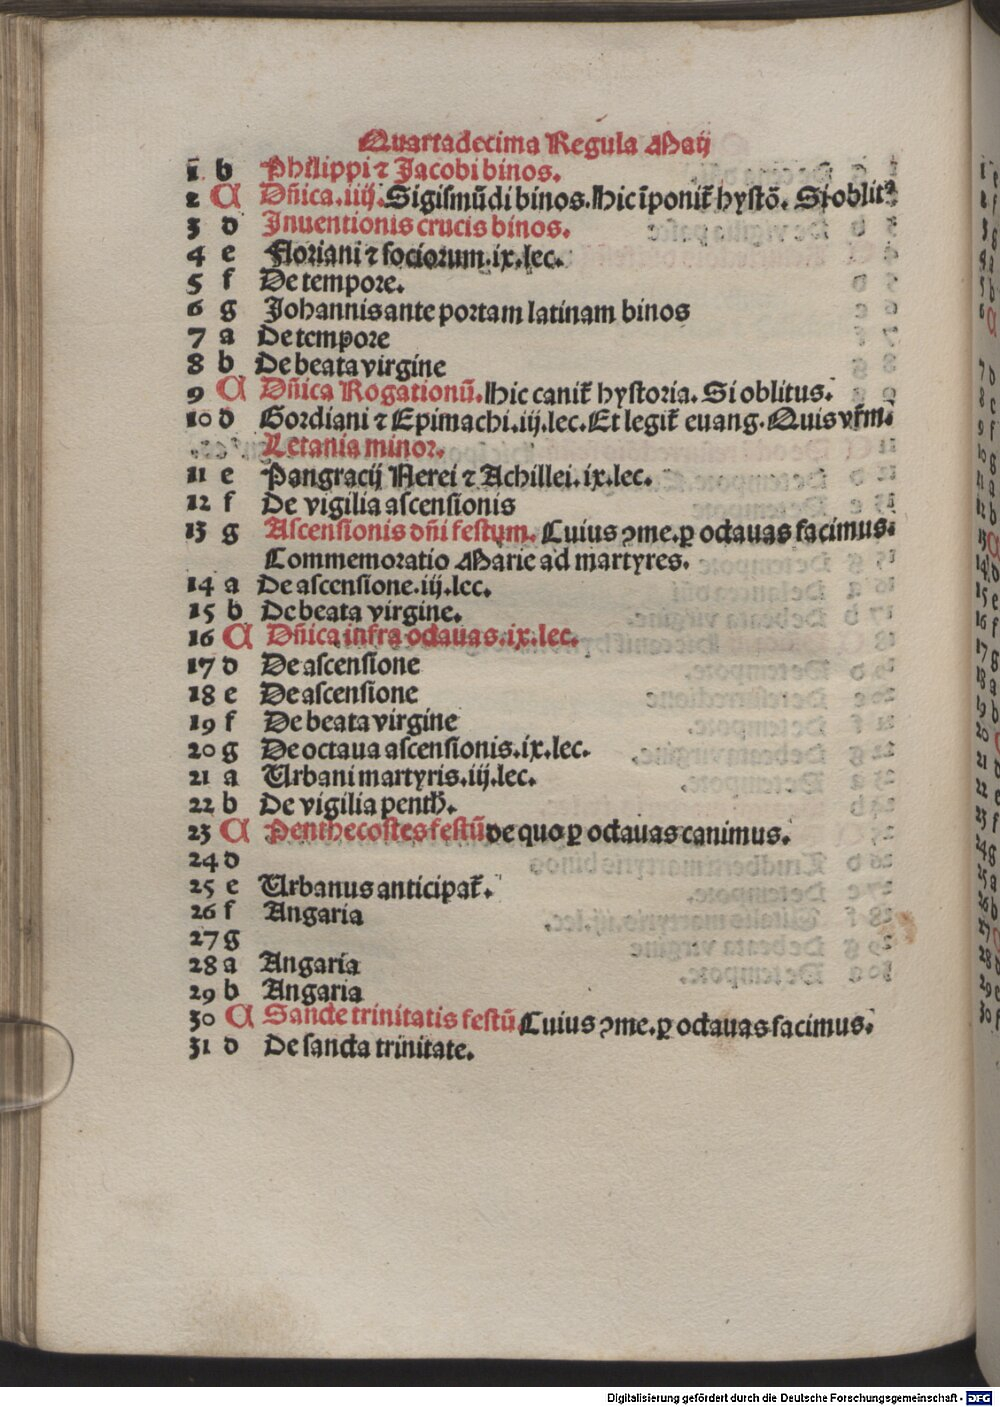 Quartadecima Regula Maij
1 b Philippi ⁊ Jacobi binos.
2 A Dñica .iiij. Sigismũdi binos. Hic ĩponit̃ hystõ. Si oblit⁹
3 d Inuentionis crucis binos.
4 e Floriani ⁊ sociorum .ix. lec.
5 f De tempore.
6 g Johannis ante portam latinam binos
7 a De tempore
8 b De beata virgine
9 A Dñica Rogationũ. Hic canit̃ hystoria. Si oblitus.
10 d Gordiani ⁊ Epimachi .iij. lec. Et legit̃ euang. Quis vr̃m.
Letania minor.
11 e Pangracij Nerei ⁊ Achillei .ix. lec.
12 f De vigilia ascensionis
13 g Ascensionis dñi festum. Cuius ꝯme. ꝑ octauas facimus.
Commemoratio Marie ad martyres.
14 a De ascensione .iij. lec.
15 b De beata virgine.
16 A Dñica infra octauas .ix. lec.
17 d De ascensione
18 e De ascensione
19 f De beata virgine
20 g De octaua ascensionis .ix. lec.
21 a Urbani martyris .iij. lec.
22 b De vigilia penth̃.
23 A Penthecostes festũ de quo ꝑ octauas canimus.
24 d
25 e Urbanus anticipat̃.
26 f Angaria
27 g
28 a Angaria
29 b Angaria
30 A Sancte trinitatis festũ Cuius ꝯme. ꝑ octauas facimus.
31 d De sancta trinitate.
Digitalisierung gefördert durch die Deutsche Forschungsgemeinschaft - DFG